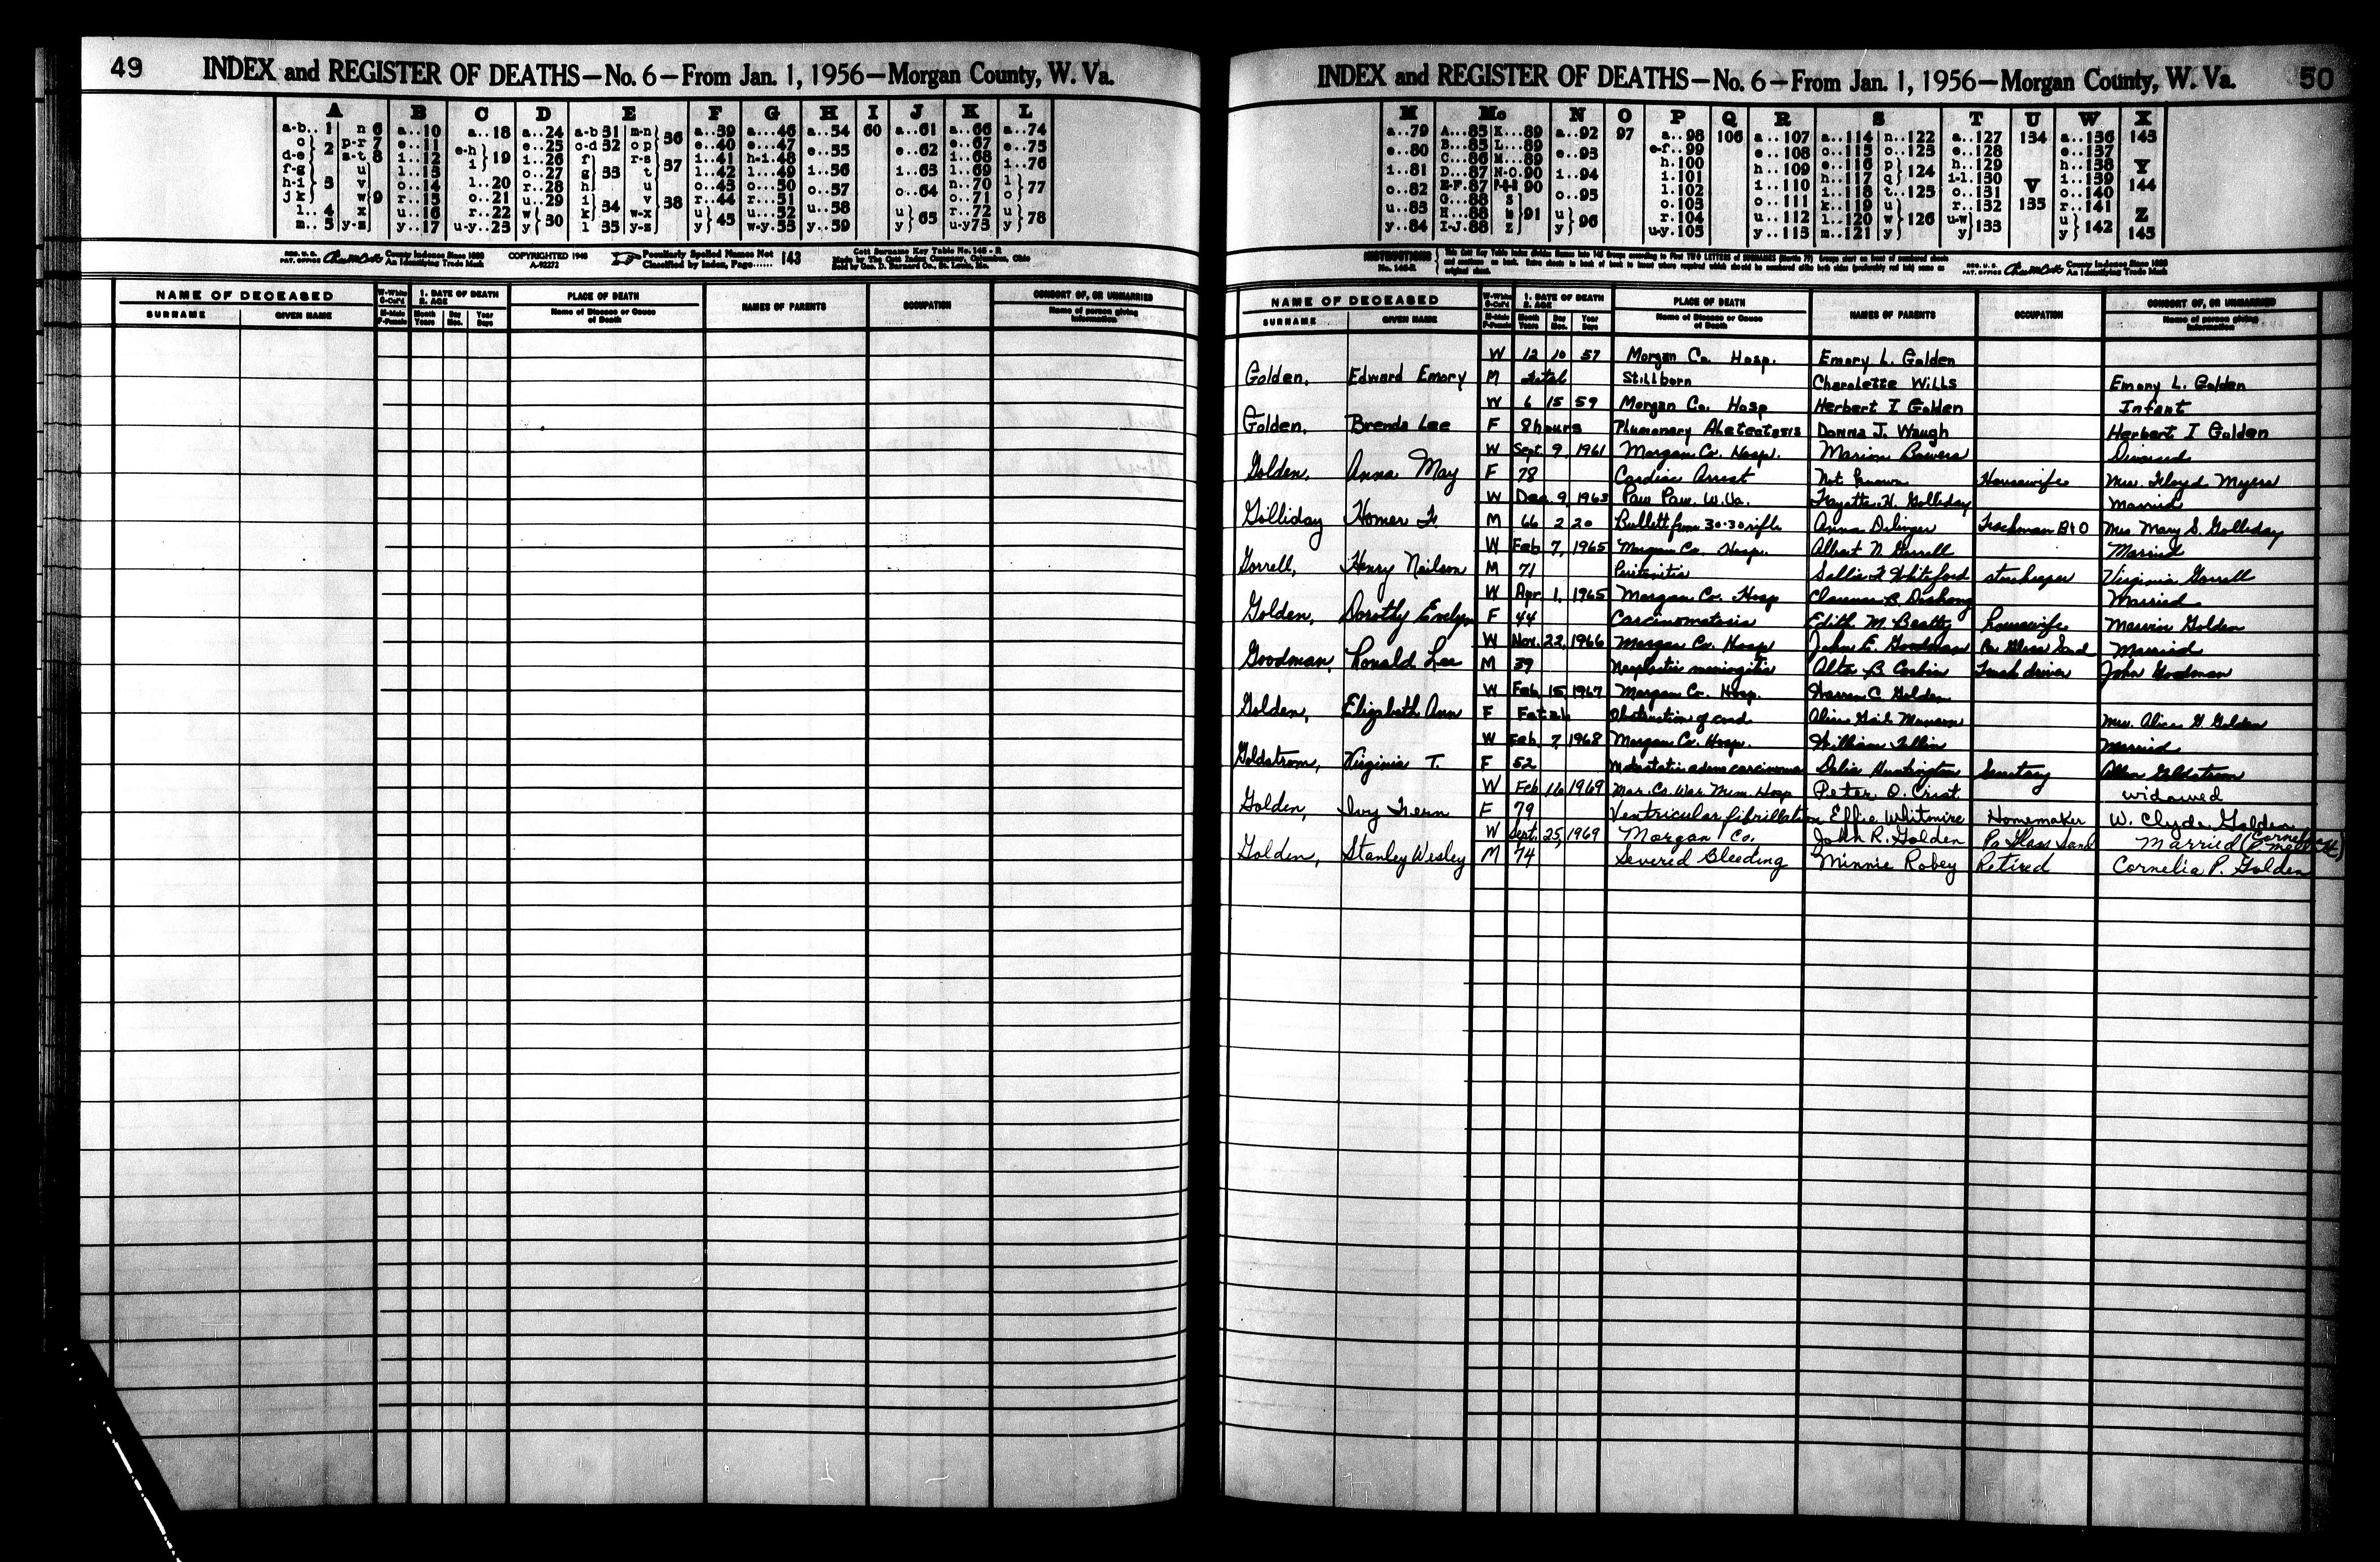 49 INDEX and REGISTER OF DEATHS—No. 6—From Jan. 1, 1956—Morgan County, W. Va.
A B C D E F G H I J K L
a-b.. 1 n 6 a...10 a...18 a...24 a-b 31 m-n a...39 a...46 a...54 60 a...61 a...66 a...74
o 2 p-r 7 e...11 e-h e...25 c-d 32 o p 36 e...40 e...47 e...55 e...62 e...67 e...75
d-e s-t 8 i...12 i 19 i...26 f r-s i...41 h-i.48 i...56 i...63 i...68 i...76
f-g u l...13 o...27 g 33 t 37 l...42 l...49 o...57 o...64 l...69 l
h-i 3 v o...14 l...20 r...28 h u o...43 o...50 u...58 u n...70 o 77
j k w 9 r...15 o...21 u...29 i v 38 r...44 r...51 y...59 y 65 o...71 u
l.. 4 x u...16 r...22 w 30 k 34 w-x u 45 u...52 r...72 y 78
m.. 5 y-z y...17 u-y..23 y l 35 y-z y w-y.53 u-y 73
REG. U. S. PAT. OFFICE County Indexes Since 1888 An Identifying Trade Mark COPYRIGHTED 1946 A-92272 Peculiarly Spelled Names Not Classified by Index, Page...... 143 Cott Surname Key Table No. 145 - R Made by The Cott Index Company, Columbus, Ohio Sold by Geo. D. Barnard Co., St. Louis, Mo.
NAME OF DECEASED W-White C-Col'd 1. DATE OF DEATH 2. AGE PLACE OF DEATH NAMES OF PARENTS OCCUPATION CONSORT OF, OR UNMARRIED
SURNAME GIVEN NAME M-Male F-Female Month Years Day Mos. Year Days Name of Disease or Cause of Death Name of person giving information
INDEX and REGISTER OF DEATHS—No. 6—From Jan. 1, 1956—Morgan County, W. Va. 50
M Mc N O P Q R S T U W X
a..79 A...85 K...89 a...92 97 a...98 106 a...107 a...114 n..122 a...127 134 a...136 143
e..80 B...85 L...89 e...93 e-f..99 e...108 o..123 e...128 e...137
i..81 C...86 M...89 i...94 h.100 h...109 e...116 p 124 h...129 h...138 Y
o..82 D...87 N-O.90 o...95 i.101 i...110 h...117 q i-l.130 V i...139 144
u..83 E-F.87 P-Q-R 90 u 96 l.102 o...111 i...118 t..125 o...131 135 o...140
y..84 G...88 S y o.103 u...112 k...119 u r...132 r...141 Z
H...88 91 r.104 y...113 l...120 w 126 u-w 133 u 142 145
I-J.88 Z u-y.105 m...121 y y y
INSTRUCTIONS No. 145-R REG. U. S. PAT. OFFICE County Indexes Since 1888 An Identifying Trade Mark
NAME OF DECEASED W-White C-Col'd 1. DATE OF DEATH 2. AGE PLACE OF DEATH NAMES OF PARENTS OCCUPATION CONSORT OF, OR UNMARRIED
SURNAME GIVEN NAME M-Male F-Female Month Years Day Mos. Year Days Name of Disease or Cause of Death Name of person giving information
W 12 10 57 Morgan Co. Hosp. Emory L. Golden
Golden, Edward Emory M Stillborn Charolette Wills Emory L. Golden
W 6 15 59 Morgan Co. Hosp Herbert I Golden Infant
Golden, Brenda Lee F 8 hours Donna J. Waugh Herbert I Golden
W Sept. 9, 1961 Morgan Co. Hosp. Marion Bowers Divorced
Golden, Anna May F 78 Cardiac Arrest Not known Housewife Mrs. Floyd Myers
W Dec. 9, 1963 Paw Paw, W.Va. Fayette H. Golliday Married
Golliday Homer F. M 66 2 20 Bullett from 30-30 rifle Anna Dilinger Trackman B&O Mrs Mary S. Golliday
W Feb 7, 1965 Morgan Co. Hosp. Albert N. Gorrell Married
Gorrell, Henry Neilson M 71 Peritonitis Sallie F. Whiteford storekeeper Virginia Gorrell
W Apr 1, 1965 Morgan Co. Hosp Clarence B. Deshong Married
Golden, Dorothy Evelyn F 44 Carcinomatosis Edith M. Beatty housewife Marvin Golden
W Nov. 22, 1966 Morgan Co. Hosp John E. Goodman Pa Glass Sand Married
Goodman, Ronald Lee M 39 Neoplastic meningitis Alta B. Corbin Truck driver John Goodman
W Feb. 15, 1967 Morgan Co. Hosp. Warren C. Golden
Golden, Elizabeth Ann F Fetal Obstruction of cord Alice Gail Munson Mrs. Alice G. Golden
W Feb. 7, 1968 Morgan Co. Hosp. William Married
Goldstrom, Virginia T. F 52 Metastatic adenocarcinoma Delia Huntington Secretary Allen Goldstrom
W Feb 16 1969 Mor. Co. War Mem. Hosp Peter O. Crist widowed
Golden, Ivy Fern F 79 Ventricular fibrillation Effie Whitmire Homemaker W. Clyde Golden
W Sept. 25, 1969 Morgan Co. John R. Golden Pa Glass Sand Married (Cornelia P.
Golden, Stanley Wesley M 74 Severed Bleeding Minnie Robey Retired Cornelia P. Golden